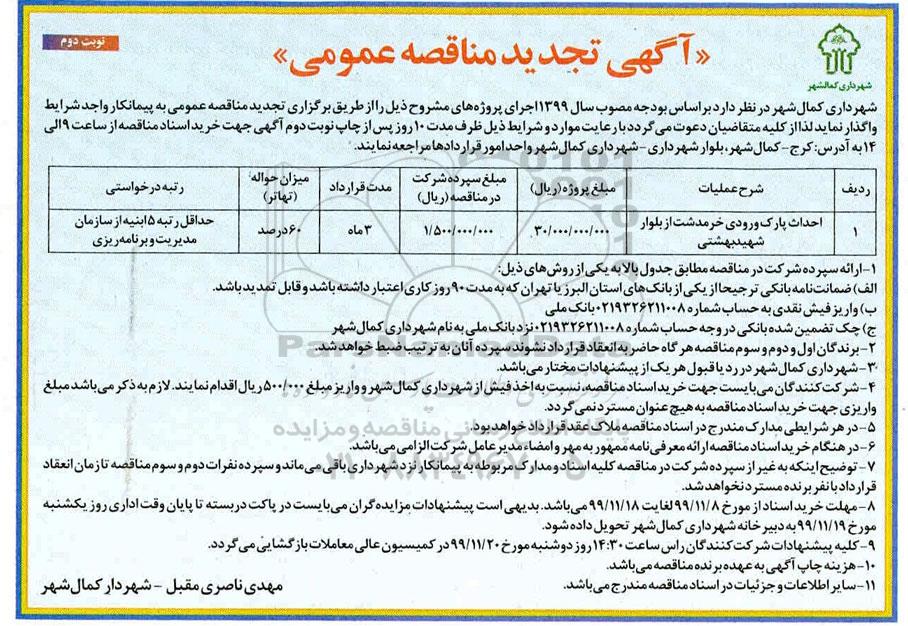 «آگهی تجدید مناقصه عمومی»
نوبت دوم
شهرداری کمالشهر
شهرداری کمال شهر در نظر دارد بر اساس بودجه مصوب سال ۱۳۹۹ اجرای پروژه های مشروح ذیل را از طریق برگزاری تجدید مناقصه عمومی به پیمانکار واجد شرایط
واگذار نماید لذا از کلیه متقاضیان دعوت می گردد با رعایت موارد و شرایط ذیل ظرف مدت ۱۰ روز پس از چاپ نوبت دوم آگهی جهت خرید اسناد مناقصه از ساعت ۹ الی
۱۴ به آدرس: کرج - کمال شهر، بلوار شهرداری - شهرداری کمال شهر واحد امور قراردادها مراجعه نمایند.
ردیف | شرح عملیات | مبلغ پروژه (ریال) | مبلغ سپرده شرکت در مناقصه (ریال) | مدت قرارداد | میزان حواله (تهاتر) | رتبه درخواستی
۱ | احداث پارک ورودی خرمدشت از بلوار شهیدبهشتی | ۳۰/۰۰۰/۰۰۰/۰۰۰ | ۱/۵۰۰/۰۰۰/۰۰۰ | ۳ ماه | ۶۰ درصد | حداقل رتبه ۵ ابنیه از سازمان مدیریت و برنامه ریزی
۱- ارائه سپرده شرکت در مناقصه مطابق جدول بالا به یکی از روش های ذیل:
الف) ضمانت نامه بانکی ترجیحا از یکی از بانک های استان البرز یا تهران که به مدت ۹۰ روز کاری اعتبار داشته باشد و قابل تمدید باشد.
ب) واریز فیش نقدی به حساب شماره ۰۲۱۹۳۲۶۲۱۱۰۰۸ بانک ملی
ج) چک تضمین شده بانکی در وجه حساب شماره ۰۲۱۹۳۲۶۲۱۱۰۰۸ نزد بانک ملی به نام شهرداری کمال شهر
۲- برندگان اول و دوم و سوم مناقصه هر گاه حاضر به انعقاد قرارداد نشوند سپرده آنان به ترتیب ضبط خواهد شد.
۳- شهرداری کمال شهر در رد یا قبول هر یک از پیشنهادات مختار می باشد.
۴- شرکت کنندگان می بایست جهت خرید اسناد مناقصه، نسبت به اخذ فیش از شهرداری کمال شهر و واریز مبلغ ۵۰۰/۰۰۰ ریال اقدام نمایند. لازم به ذکر می باشد مبلغ
واریزی جهت خرید اسناد مناقصه به هیچ عنوان مسترد نمی گردد.
۵- در هر شرایطی مدارک مندرج در اسناد مناقصه ملاک عقد قرارداد خواهد بود.
۶- در هنگام خرید اسناد مناقصه ارائه معرفی نامه ممهور به مهر و امضاء مدیر عامل شرکت الزامی می باشد.
۷- توضیح اینکه به غیر از سپرده شرکت در مناقصه کلیه اسناد و مدارک مربوطه به پیمانکار نزد شهرداری باقی می ماند و سپرده نفرات دوم و سوم مناقصه تا زمان انعقاد
قرارداد با نفر برنده مسترد نخواهد شد.
۸- مهلت خرید اسناد از مورخ ۹۹/۱۱/۸ لغایت ۹۹/۱۱/۱۸ می باشد. بدیهی است پیشنهادات مزایده گران می بایست در پاکت دربسته تا پایان وقت اداری روز یکشنبه
مورخ ۹۹/۱۱/۱۹ به دبیرخانه شهرداری کمال شهر تحویل داده شود.
۹- کلیه پیشنهادات شرکت کنندگان راس ساعت ۱۴:۳۰ روز دوشنبه مورخ ۹۹/۱۱/۲۰ در کمیسیون عالی معاملات بازگشایی می گردد.
۱۰- هزینه چاپ آگهی به عهده برنده مناقصه می باشد.
۱۱- سایر اطلاعات و جزئیات در اسناد مناقصه مندرج می باشد.
مهدی ناصری مقبل - شهردار کمال شهر